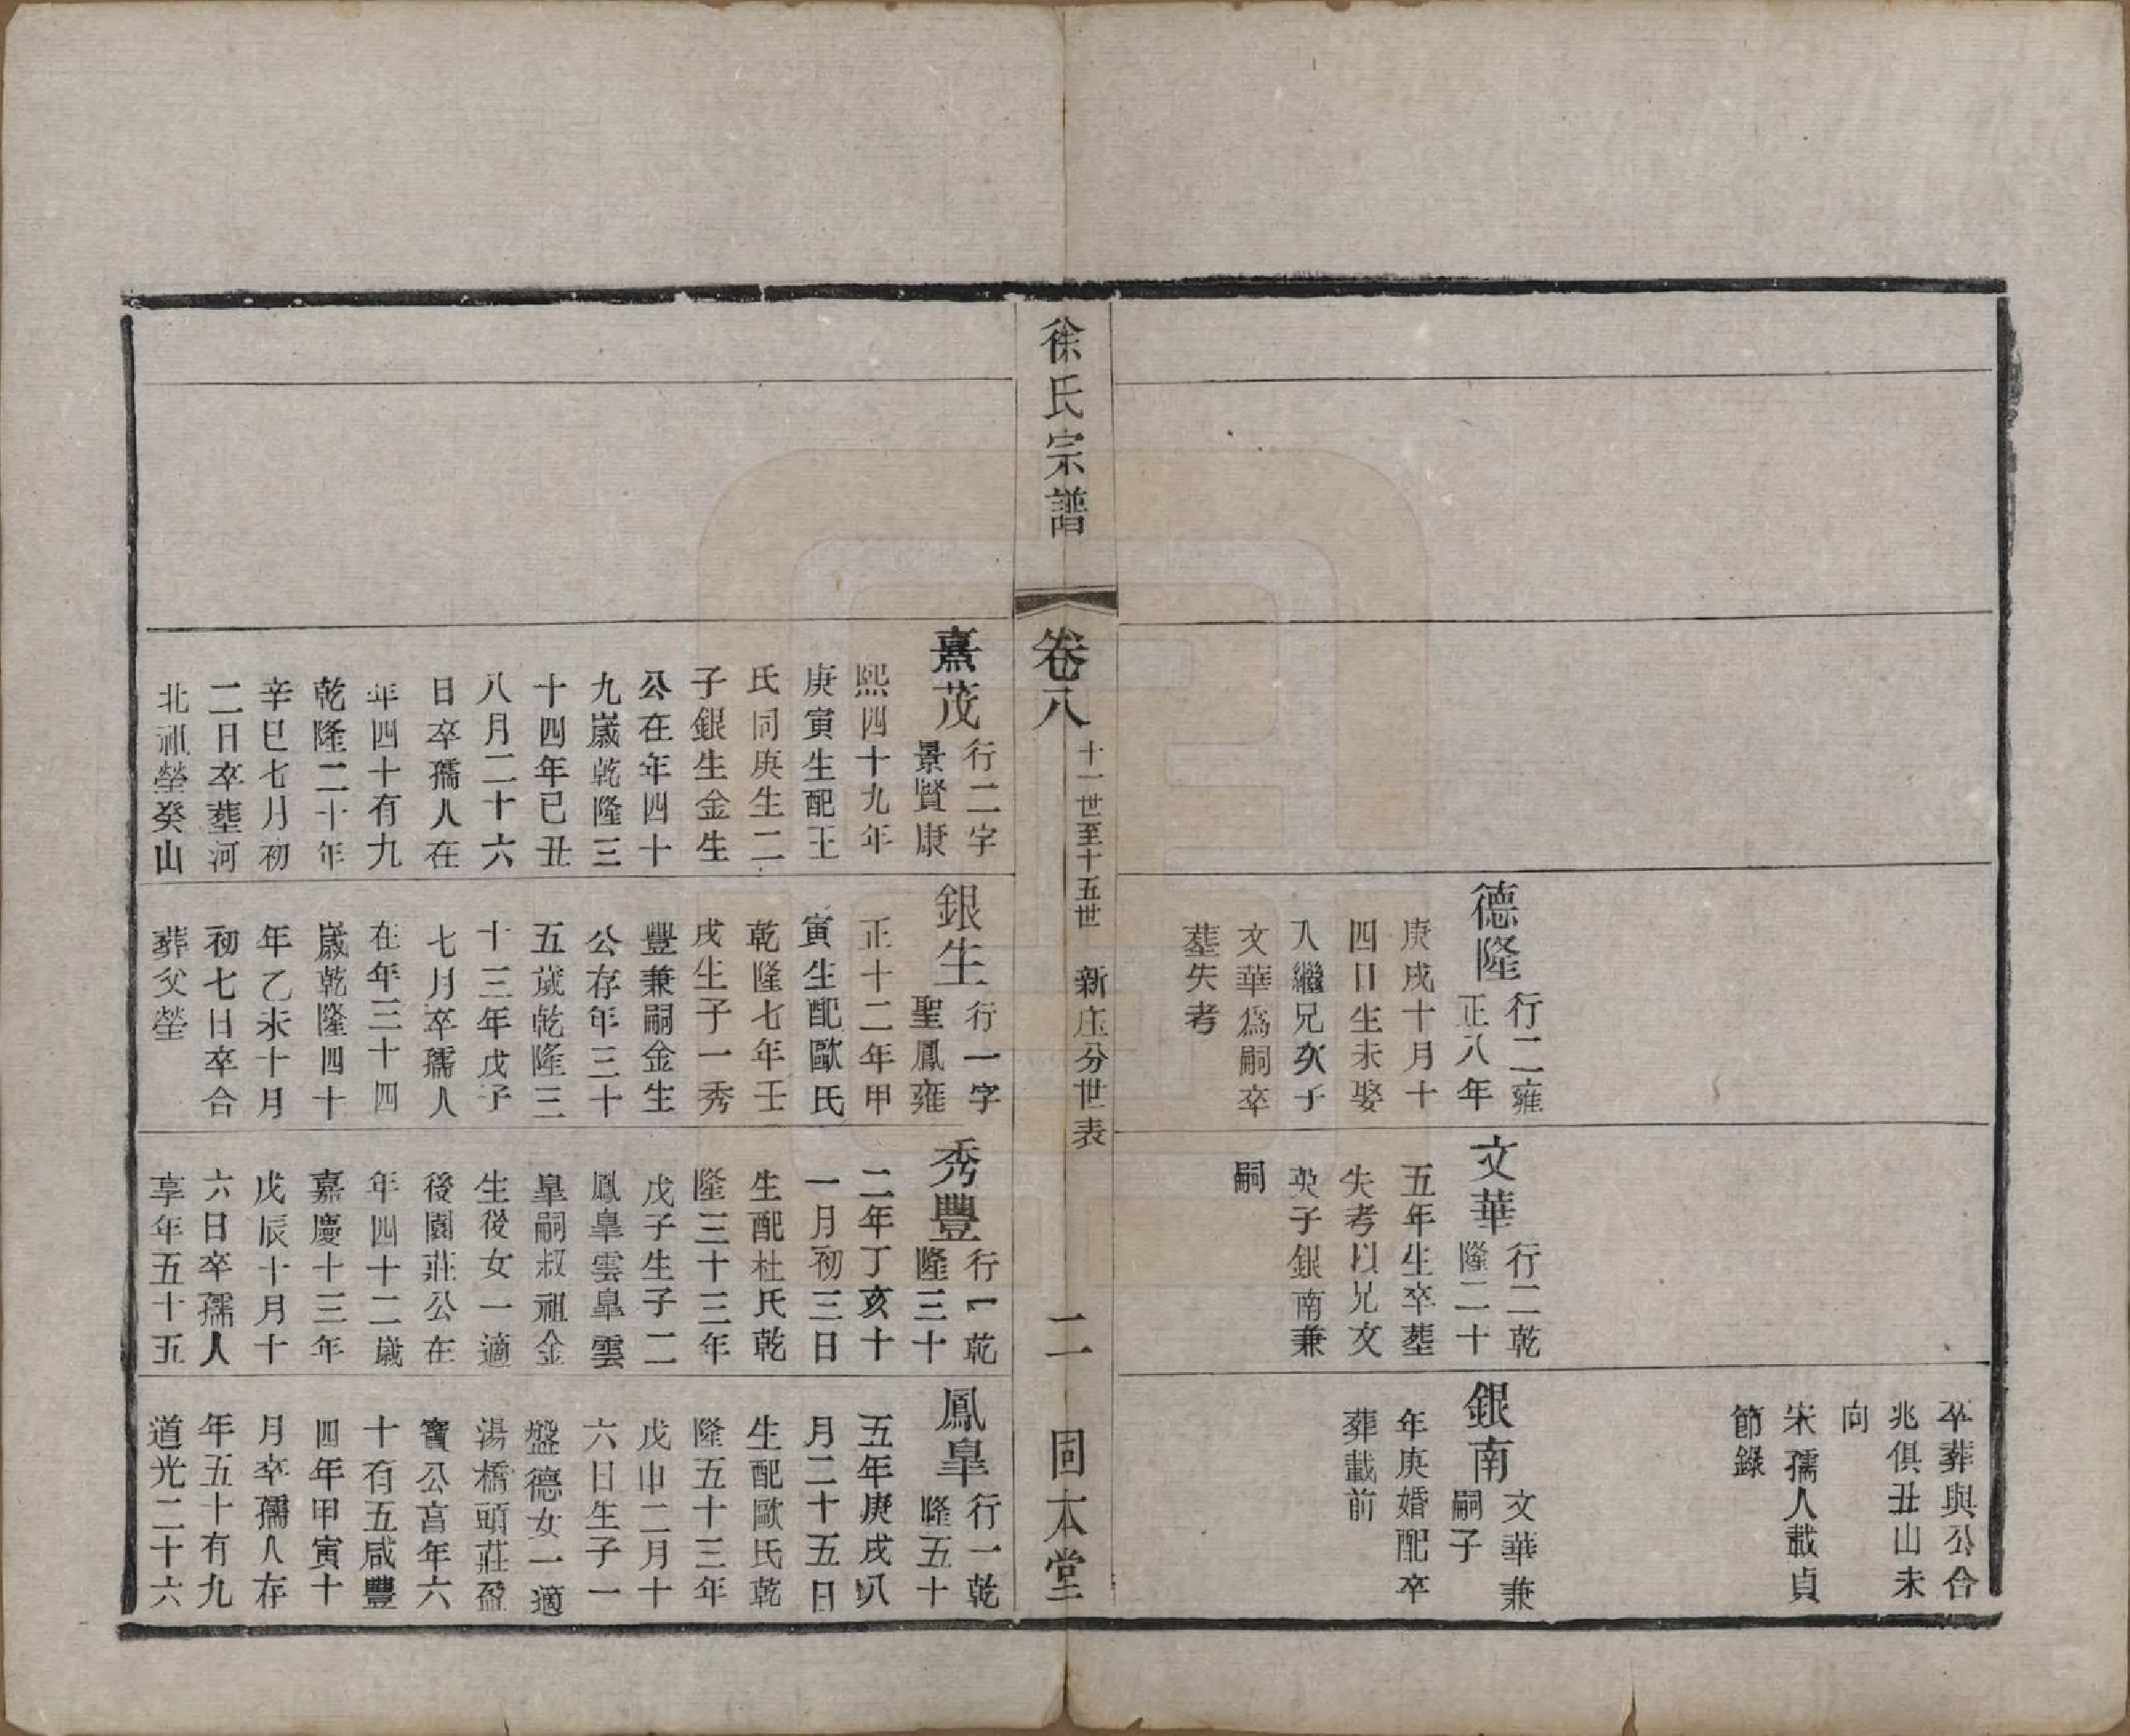 卒葬與公合
兆俱丑山未
向
宋孺人載貞
節錄
德隆
行二雍
正八年
庚戌十月十
四日生未娶
入繼兄次子
文華爲嗣卒
塟失考
文華
行二乾
隆二十
五年生卒塟
失考以兄文
英子銀南兼
嗣
銀南
文華兼
嗣子
年庚婚配卒
葬載前
徐氏宗譜
卷八
十一世至十五世 新庄分世表
二
固本堂
熹茂
行二字
景賢康
熙四十九年
庚寅生配王
氏同庚生二
子銀生金生
公在年四十
九歲乾隆三
十四年已丑
八月二十六
日卒孺人在
年四十有九
乾隆二十年
辛巳七月初
二日卒塟河
北祖塋癸山
銀生
行一字
聖鳳雍
正十二年甲
寅生配歐氏
乾隆七年壬
戌生子一秀
豐兼嗣金生
公存年三十
五歲乾隆三
十三年戊子
七月卒孺人
在年三十四
歲乾隆四十
年乙未十月
初七日卒合
葬父塋
秀豐
行一乾
隆三十
二年丁亥十
一月初三日
生配杜氏乾
隆三十三年
戊子生子二
鳳皐雲皐雲
皐嗣叔祖金
生後女一適
後園莊公在
年四十二歲
嘉慶十三年
戊辰十月十
六日卒孺人
享年五十五
鳳皐
行一乾
隆五十
五年庚戌八
月二十五日
生配歐氏乾
隆五十三年
戊申二月十
六日生子一
盤德女一適
湯橋頭莊盈
寶公享年六
十有五咸豐
四年甲寅十
月卒孺人存
年五十有九
道光二十六